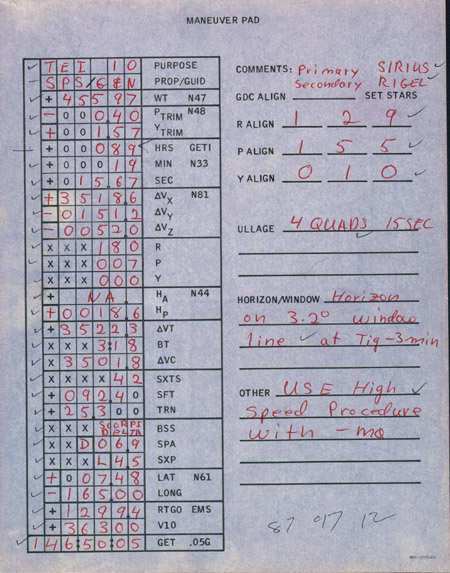 MANEUVER PAD
TEI 10 PURPOSE
SPS/G&N PROP/GUID
+ 45597 WT N47
- 00040 PTRIM N48
+ 00157 YTRIM
+ 00089 HRS GETI
+ 00019 MIN N33
+ 01567 SEC
+ 35186 ΔVX N81
- 01512 ΔVY
- 00520 ΔVZ
XXX180 R
XXX007 P
XXX000 Y
+ NA HA N44
+ 00186 HP
+ 35223 ΔVT
XXX3:18 BT
X35018 ΔVC
XXXX42 SXTS
+ 09240 SFT
+ 25300 TRN
XXX SCORPI DELTA BSS
XXD069 SPA
XXXL4.5 SXP
+ 00748 LAT N61
- 16500 LONG
+ 12994 RTGO EMS
+ 36300 V10
146:50:05 GET .05G
COMMENTS: Primary SIRIUS
Secondary RIGEL
GDC ALIGN SET STARS
R ALIGN 1 2 9
P ALIGN 1 5 5
Y ALIGN 0 1 0
ULLAGE 4 QUADS 15 SEC
HORIZON/WINDOW Horizon
on 3.2° window
line at Tig-3min
OTHER USE High
Speed Procedure
with - MA